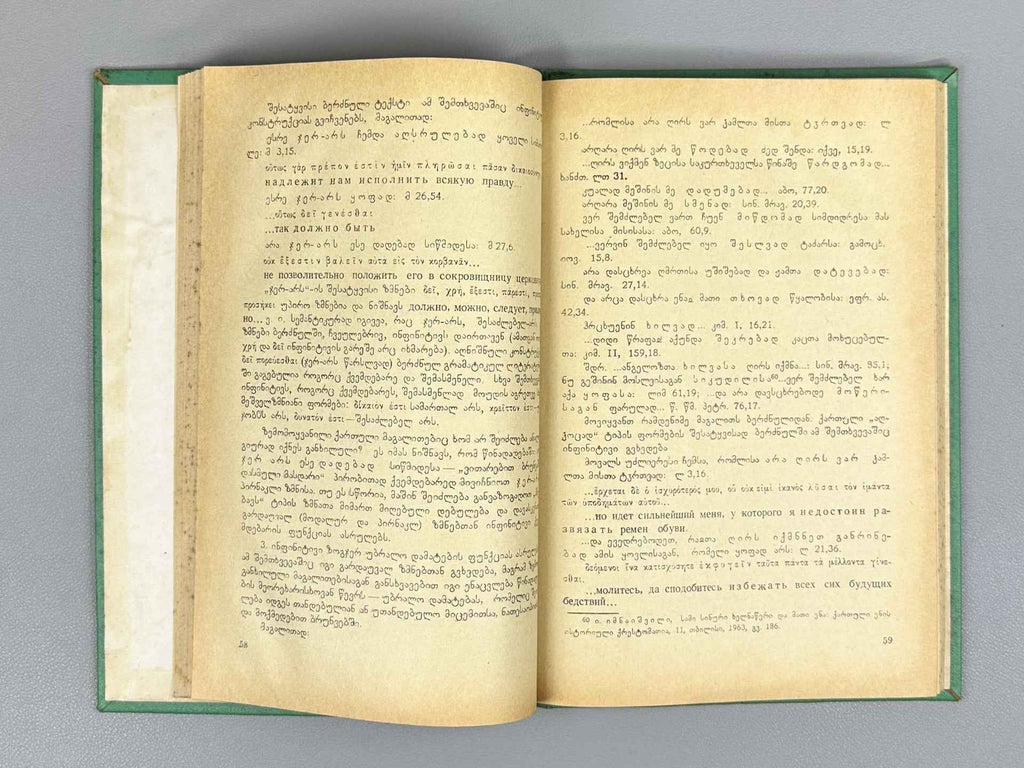 შესატყვისი ბერძნული ტექსტი ამ შემთხვევაშიც
კონსტრუქციას გვიჩვენებს, მაგალითად:
ესრე ჯერ-არს ჩემდა აღსრულებად ყოველი
ლე: მ 3,15.
οὕτως γὰρ πρέπον ἐστὶν ἡμῖν πληρῶσαι πᾶσαν
надлежит нам исполнить всякую правду...
ესრე ჯერ-არს ყოფად: მ 26,54.
...οὕτως δεῖ γενέσθαι
...так должно быть
არა ჯერ-არს ესე დადებად სიწმიდესა: მ 27,6.
οὐκ ἔξεστιν βαλεῖν αὐτὰ εἰς τὸν κορβανᾶν...
не позволительно положить его в сокровищницу
„ჯერ-არს“-ის შესატყვისი ზმნები δεῖ, χρή, ἔξεστι, πάρεστι,
προσήκει უპირო ზმნებია და ნიშნავს должно, можно, следует,
но... ე. ი. სემანტიკურად იგივეა, რაც ჯერ-არს, შესაძლებელ-არს
ზმნები ბერძნულში, ჩვეულებრივ, ინფინიტივს დაირთავენ
χρή და δεῖ ინფინიტივის გარეშე არც იხმარება). აღნიშნული
δεῖ πορεύεσθαι (ჯერ-არს წარსლვად) ბერძნულ გრამატიკულ
ში გაგებულია როგორც ქვემდებარე და შემასმენელი. სხვა
ინფინიტივს, როგორც ქვემდებარეს, შემასმენლად მოუდის
მეშველზმნიანი ფორმები: δίκαιον ἐστι სამართალ არს, κρεῖττον ἐστι—
ჯობს არს, δυνατόν ἐστι—შესაძლებელ არს.
ზემომოყვანილი ქართული მაგალითებიც ხომ არ შეიძლება
გიურად იქნეს განხილული? ეს იმას ნიშნავს, რომ წინადადებაში:
ჯერ არს ესე დადებად სიწმიდესა — „ვითარებით
დასმული მასდარი“ პირობითად ქვემდებარედ მივიჩნიოთ
პირნაკლი ზმნისა. თუ ეს სწორია, მაშინ შეიძლება განვაზოგადოთ
ბავს“ ტიპის ზმნათა მიმართ მიღებული დებულება და
გარდაუვალ (მოდალურ და პირნაკლ) ზმნებთან ინფინიტივი
მდებარის ფუნქციას ასრულებს.
3. ინფინიტივი ზოგჯერ უბრალო დამატების ფუნქციას
ამ შემთხვევაშიც იგი გარდაუვალ ზმნებთან გვხვდება, მაგრამ
განხილული მაგალითებისაგან განსხვავებით იგი ენაცვლება
ბის მეორეხარისხოვან წევრს — უბრალო დამატებას, რომელიც
ლება იდგეს თანდებულიან ან უთანდებულო მიცემითსა,
და მოქმედებით ბრუნვებში.
მაგალითად:
58
...რომლისა არა ღირს ვარ ჴამლთა მისთა ტჳრთვად: ლ
3,16.
არღარა ღირს ვარ მე წოდებად ძედ შენდა: იქვე, 15,19.
...ღირს ვიქმენ ზეცისა საკურთხეველსა წინაშე წარდგომად...
ხანძთ. ლთ 31.
კუალად მეშინის მე დადუმებად... აბო, 77,20.
არღარა მეშინის მე სმენად: სინ. მრავ. 20,39.
ვერ შემძლებელ ვართ ჩუენ მიწდომად სიმდიდრესა მას
სახელისა მისისასა: აბო, 60,9.
...ვერვინ შემძლებელ იყო შესლვად ტაძარსა: გამოცხ.
იოვ. 15,8.
არა დასცხრეა ღმრთისა უშიშებად და ჟამთა დატევებად:
სინ. მრავ. 27,14.
და არცა დასცხრა ენაჲ მათი თხოვად წყალობისა: ეფრ. ას.
42,34.
ჰრცხუენინ ხილვად... კიმ. I, 16,21.
...დიდი წრაფაჲ აქუნდა შეკრებად კაცთა მოხუცებულ-
თა: კიმ. II, 159,18.
შდრ. ...ანგელოზთა ხილვასა ღირს იქმნა...: სინ. მრავ. 95,1;
ნუ გეშინინ მოსლვისაგან სიკუდილისა⁶⁰...ვერ შემძლებელ ხარ
აქა ყოფასა: ლიმ 61,19; ...და არა დავსცხრებოდე მოწერი-
საგან ფარულად... წ. წმ. პეტრ. 76,17.
მოვიყვანთ რამდენიმე მაგალითს ბერძნულიდან: ქართული „აღ-
კოცად“ ტიპის ფორმების შესატყვისად ბერძნულში ამ შემთხვევაშიც
ინფინიტივი გვხვდება
მოვალს უძლიერესი ჩემსა, რომლისა არა ღირს ვარ ჴამ-
ლთა მისთა ტჳრთვად: ლ 3,16.
...ἔρχεται δὲ ὁ ἰσχυρότερός μου, οὗ οὐκ εἰμὶ ἱκανὸς λῦσαι τὸν ἱμάντα
τῶν ὑποδημάτων αὐτοῦ...
...но идет сильнейший меня, у которого я недостоин раз-
вязать ремен обуви.
...და ევედრებოდეთ, რაჲთა ღირს იქმნნეთ განრინე-
ბად ამის ყოვლისაგან, რომელი ყოფად არს: ლ 21,36.
δεόμενοι ἵνα κατισχύσητε ἐκφυγεῖν ταῦτα πάντα τὰ μέλλοντα γίνε-
σθαι.
...молитесь, да сподобитесь избежать всех сих будущих
бедствий...
60 ი. იმნაიშვილი, სამი სინური ხელნაწერი და მათი ენა: ქართული ენის
ისტორიული ქრესტომათია, II, თბილისი, 1963, გვ. 186.
59